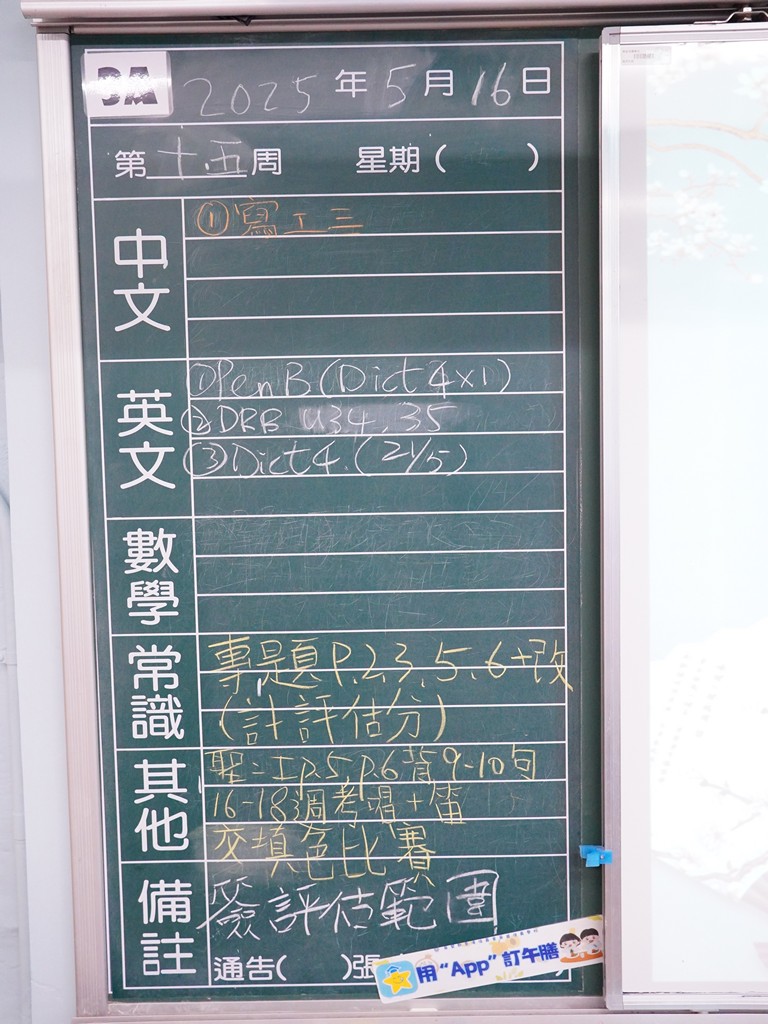 3A 2025年5月16日
第十五周 星期( )
中文
①寫工三
英文
①Pen B (Dict 4×1)
②DRB U34, 35
③Dict 4. (21/5)
數學
常識
專題P.2,3,5,6+改
(計評估分)
其他
聖=工p.5,p.6背9-10句
16-18周考唱+笛
交填色比賽
備註
簽評估範圍
通告( )張
用“App”訂午膳